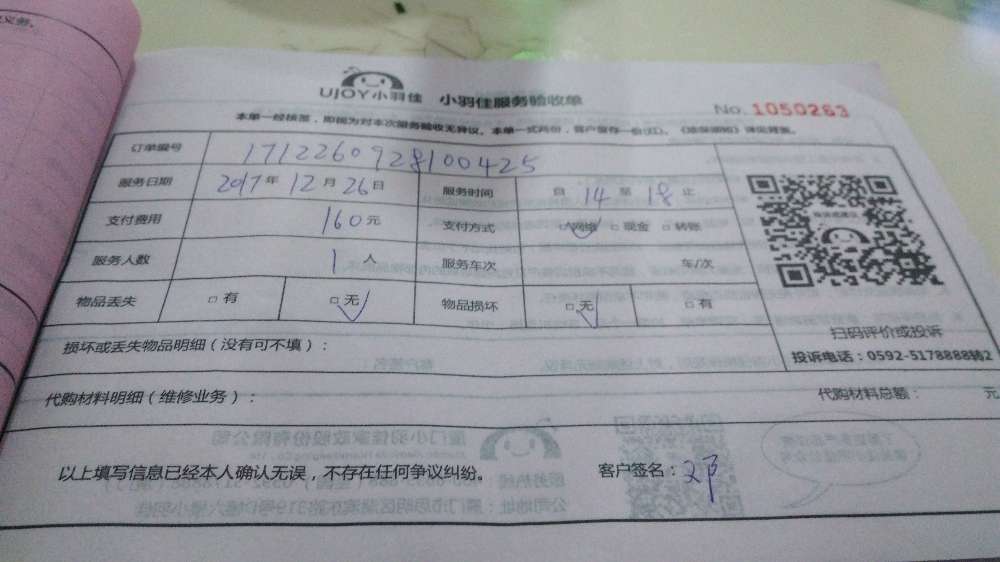 UJOY小羽佳 小羽佳服务验收单
No. 1050263
本单一经核签，即视为对本次服务验收无异议。本单一式两份，客户留存一份(红)。
订单编号 1712260928100425
服务日期 2017年12月26日 服务时间 自 14 至 18 止
支付费用 160元 支付方式 □网络 □现金 □转账
服务人数 1人 服务车次 车/次
物品丢失 □有 □无 物品损坏 □无 □有
扫码评价或投诉
投诉电话：0592-5178888转2
损坏或丢失物品明细（没有可不填）：
代购材料明细（维修业务）： 代购材料总额： 元
以上填写信息已经本人确认无误，不存在任何争议纠纷。 客户签名：